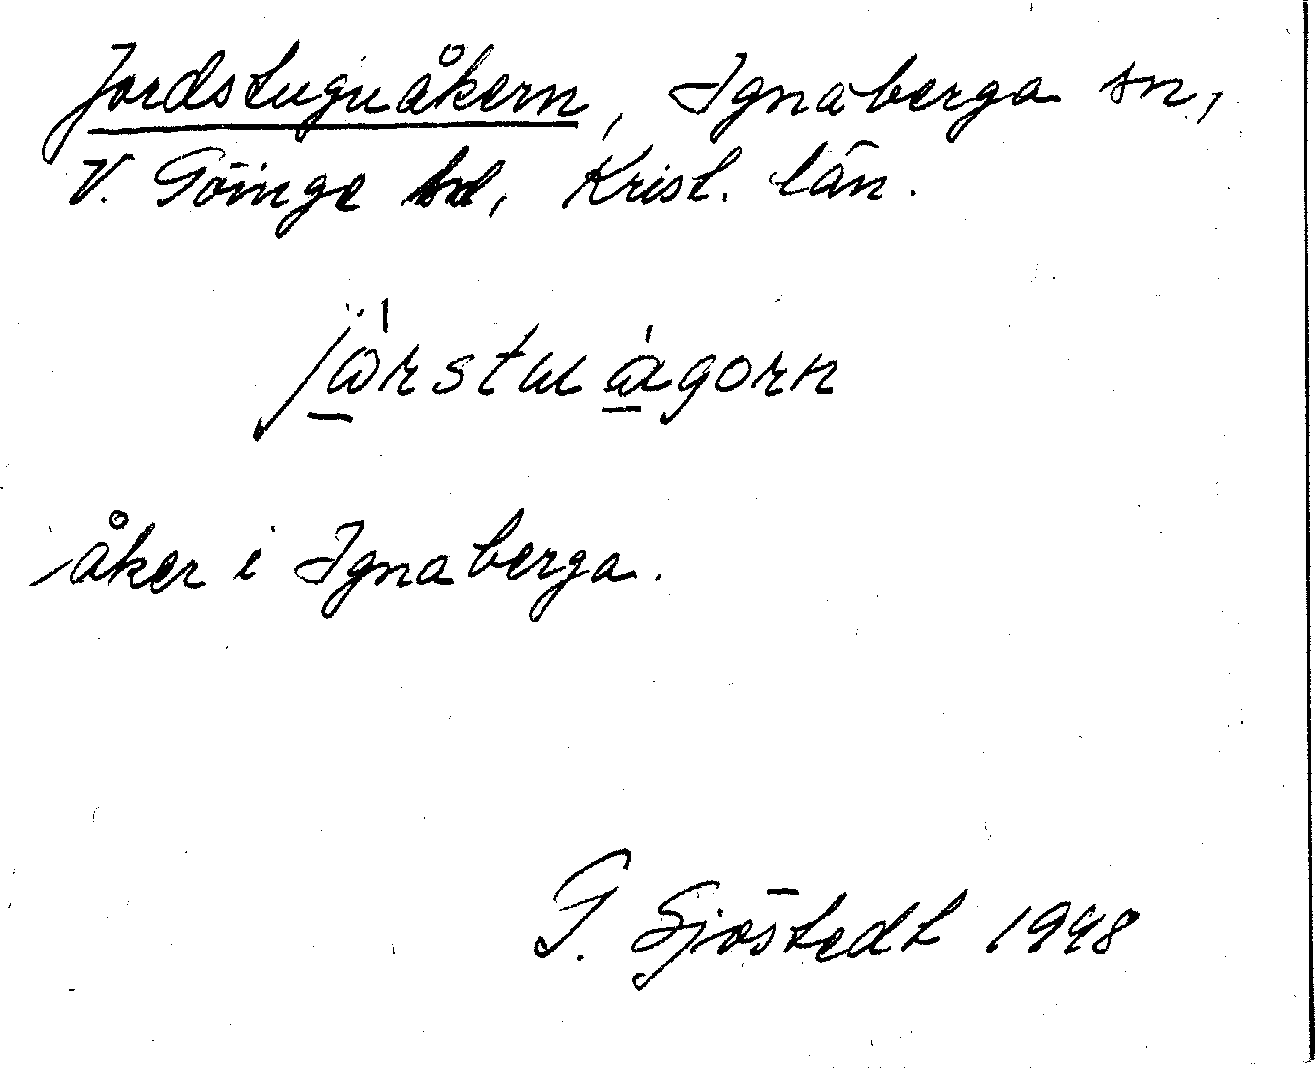 Jordstuguåkern, Ignaberga sn,
V. Göinge hd, Krist. län.
åker i Ignaberga.
G. Sjöstedt 1948